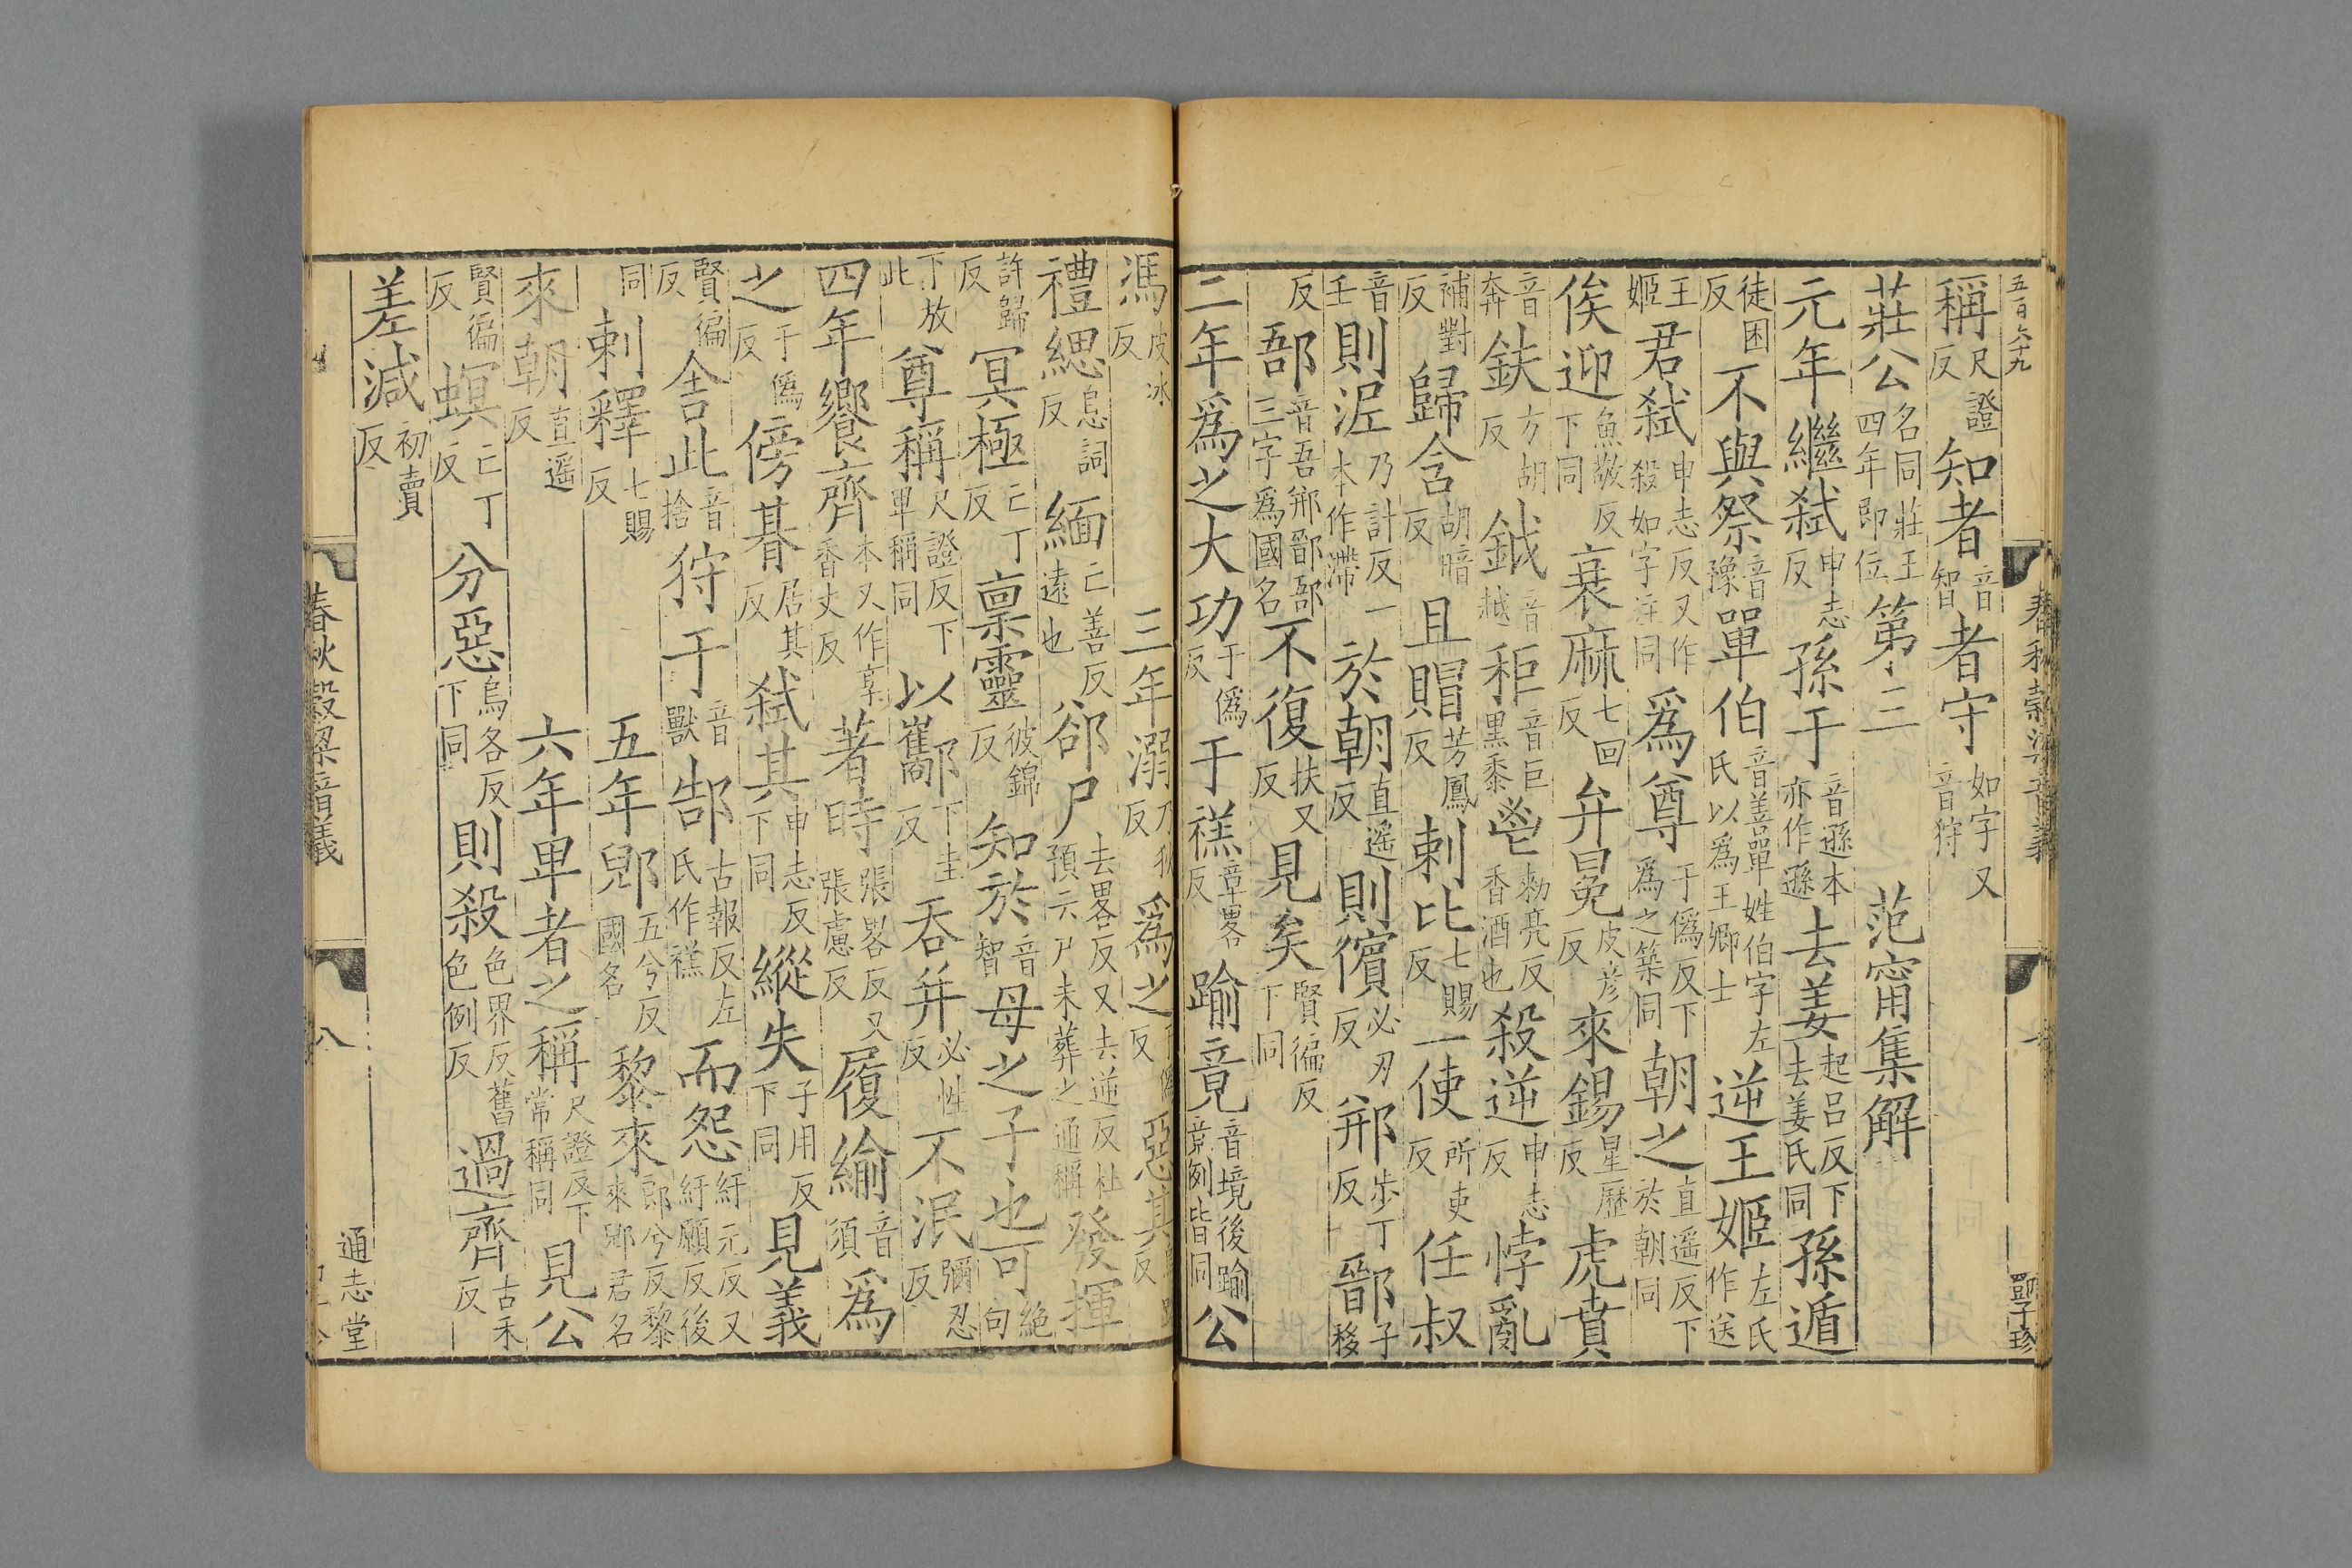 五百六十九
稱尺證反知者音智者守如字又音狩
莊公名同莊王四年即位第三 范甯集解
元年繼弑申志反孫于音遜本亦作遜去姜起呂反下去姜氏同孫遁
徒困反不與祭音豫單伯音善單姓伯字左氏以爲王卿士逆王姬左氏作送
王姬君弑申志反又作殺如字注同爲尊于僞反下爲之築同朝之直遥反下於朝同
俟迎魚敬反下同衰麻七回反弁冕皮彦反來錫星歷反虎賁
音奔鈇方胡反鉞音越秬音巨黑黍鬯勑亮反香酒也殺逆申志反悖亂
補對反歸含胡暗反且賵芳鳳反剌比七賜反一使所吏反任叔
音壬則泥乃計反一本作滯於朝直遥反則儐必刃反郱步丁反鄑子移
反郚音吾郱鄑郚三字爲國名不復扶又反見矣賢徧反下同
二年爲之大功于僞反于禚章畧反踰竟音境後踰竟例皆同公
馮皮冰反 三年溺乃狄反爲之于僞反惡其
禮緦息詞反緬亡善反遠也郤尸去畧反又去逆反杜預云尸未葬之通稱發揮
許歸反冥極亡丁反禀靈彼錦反知於音智母之子也可絶句
下放此尊稱尺證反下卑稱同以酅下圭反吞并必性反不泯彌忍反
四年饗齊本又作享香丈反著時張畧反又張慮反履緰音須爲
之于僞反傍朞居其反弑其申志反下同縱失子用反下同見義
賢徧反舍此音捨狩于音獸郜古報反左氏作禚而怨紆元反又紆願反後
同剌釋七賜反 五年郳五兮反國名黎來郎兮反黎來郳君名
來朝直遥反 六年卑者之稱尺證反下常稱同見公
賢徧反螟亡丁反分惡烏各反下同則殺色界反舊色例反過齊古禾反
差減初賣反
春秋穀梁音義 八 通志堂